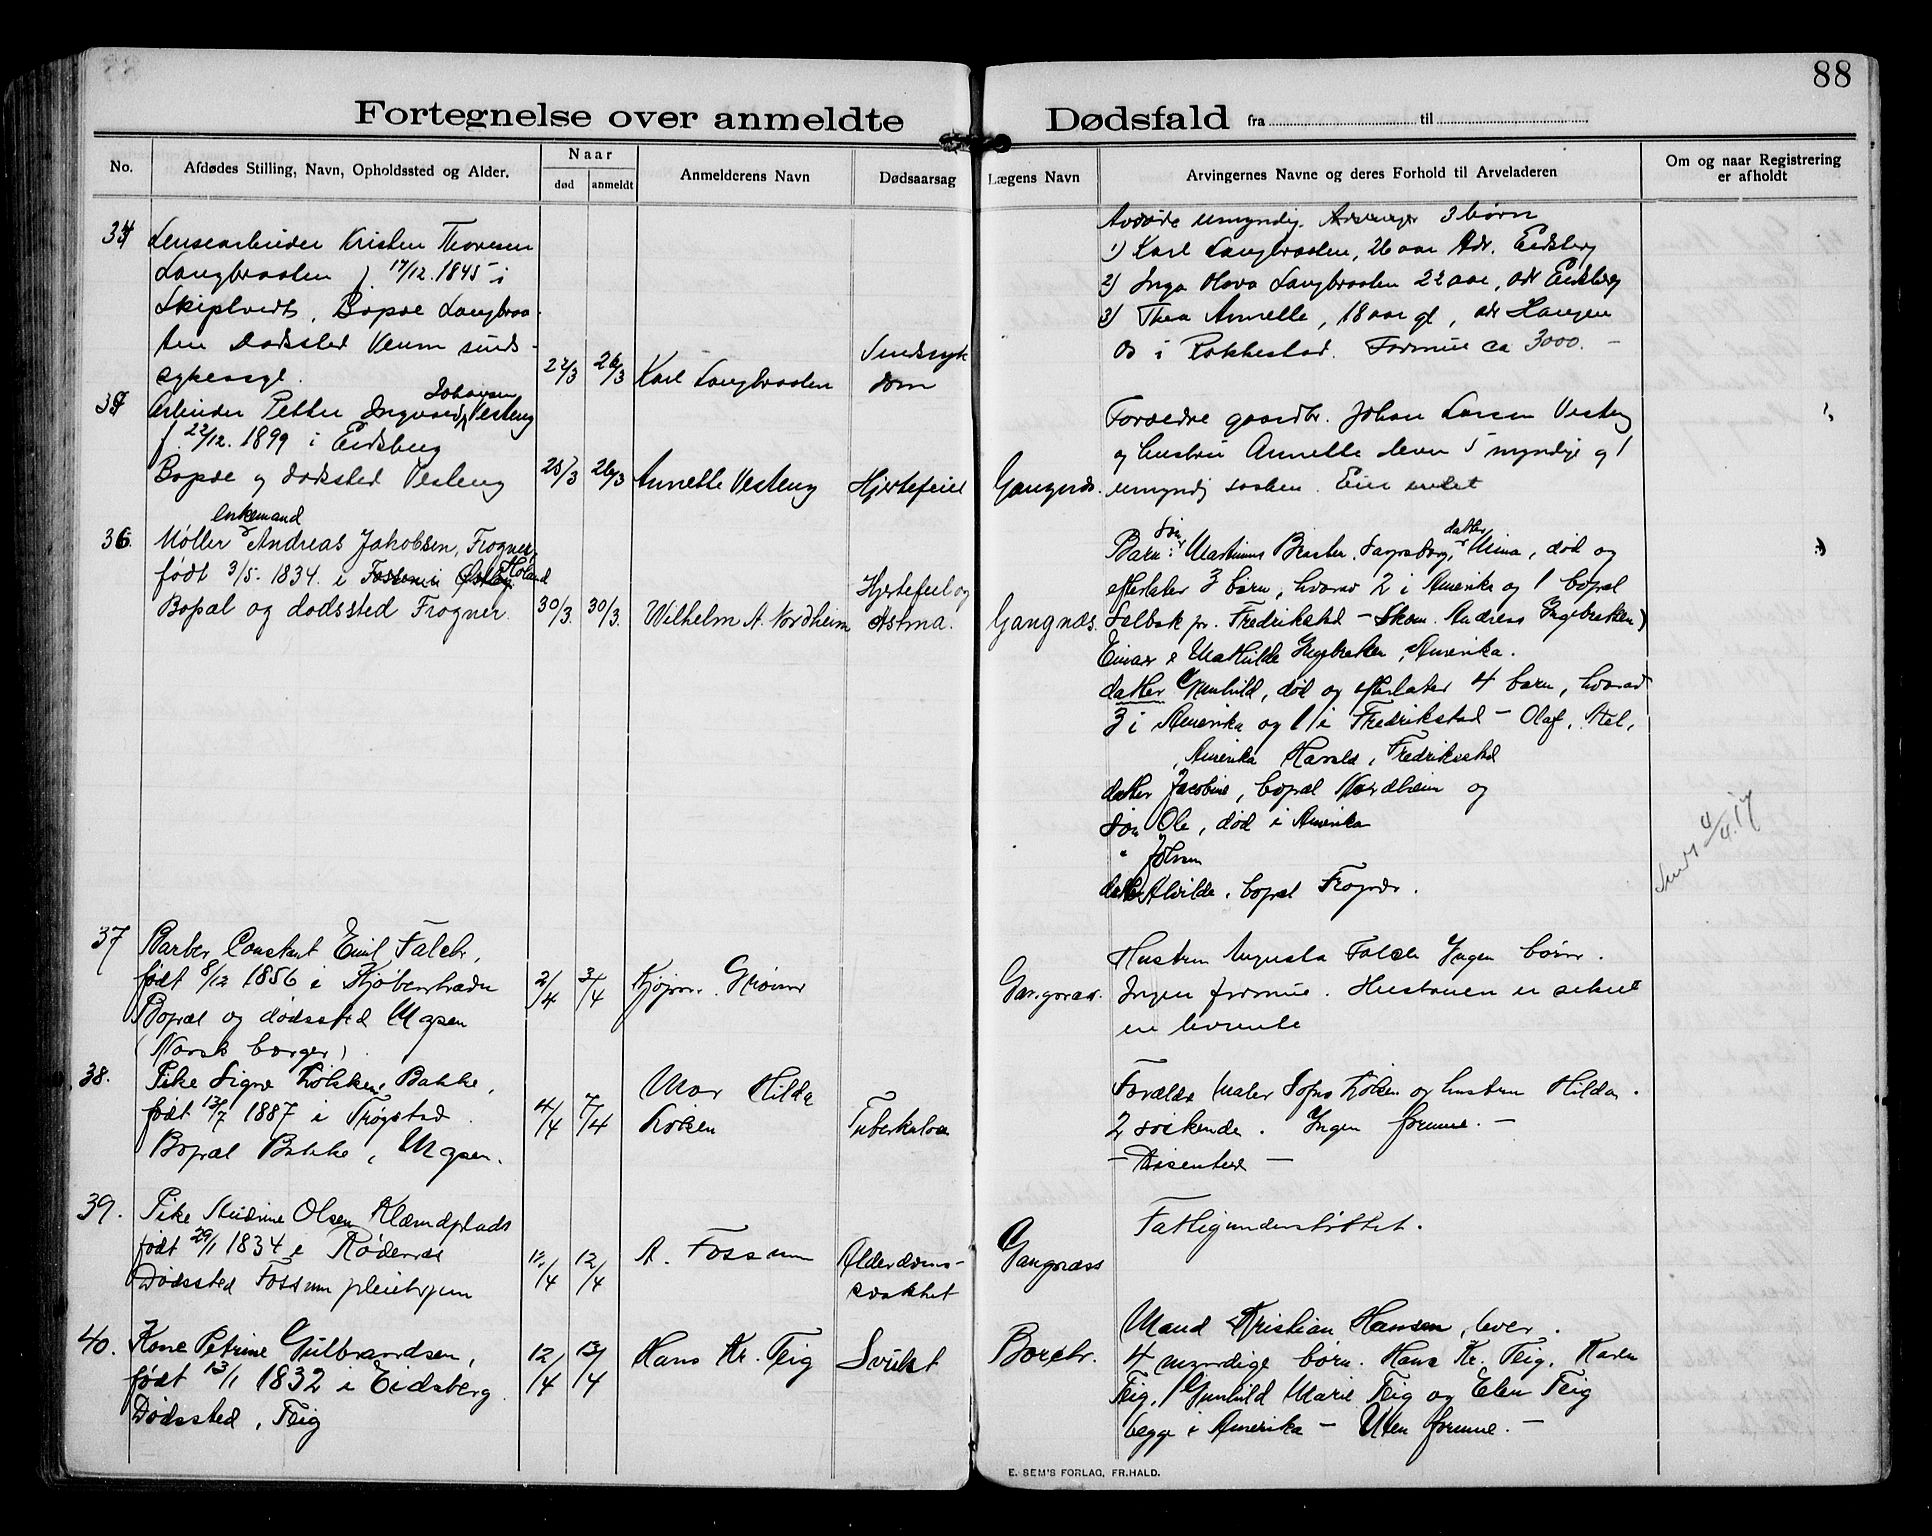 88
Fortegnelse over anmeldte Dødsfald fra til
No.
Afdødes Stilling, Navn, Opholdssted og Alder.
Naar
død
anmeldt
Anmelderens Navn
Dødsaarsag
Lægens Navn
Arvingernes Navne og deres Forhold til Arveladeren
Om og naar Registrering
er afholdt
34
Lensearbeider Kristen Thoresen
Langbraaten f. 17/12. 1845 i
Skiptvedt, Bopæl Langbraa-
ten Dødssted Veum sinds-
sykeasyl.
22/3
26/3
Karl Langbraaten
Sindssyk
dom
umyndig. 3 børn
1) Karl Langbraaten, 26 aar Adr. Eidsberg
2) Inga Olava Langbraaten 22 aar, adr Eidsberg
3) Thea Annette, 18 aar gl, adr Haugen
Os i Rakkestad. Formue ca 3000. –
35
Arbeider Petter Ingvard Johansen Vesteng
f. 22/12. 1899 i Eidsberg
Bopæl og dødssted Vesteng
25/3
26/3
Annette Vesteng
Hjertefeil
Gangnæs.
Forældre gaardbr. Johan Larsen Vesteng
og hustru Annette lever 5 myndige og 1
umyndig søsken. Eier intet
36.
enkemand
Møller Andreas Jakobsen, Frogner,
født 3/5. 1834. i Høland
Bopæl og dødssted Frogner.
30/3.
30/3.
Wilhelm A. Nordheim
Hjertefeil og
Astma.
Gangnæs.
Barn: Søn Martinus Sarpsborg, datter Mina, død og
efterlater 3 børn, hvorav 2 i Amerika og 1 bopæl
Selbak pr. Fredrikstad – Skom. Andreas Ingebretsen)
Einar & Mathilde Ingebretsen, Amerika.
datter Gunhild, død og efterlater 4 børn, hvorav
3 i Amerika og 1 i Fredrikstad – Olaf,
Amerika Harald, Fredrikstad
datter Jacobine, bopæl Nordheim og
søn Ole, død i Amerika
" Johan
datter Alvilde, bopæl Frogner.
4/4.17
37
Barber Constant Emil Falch,
født 8/12 1856 i Kjøbenhavn
Bopæl og dødssted Mysen
(Norsk borger)
2/4
3/4
Kjøpm.
Gangnæs.
Hustru Augusta Falch Ingen børn.
Ingen formue. Hustruen er sikret
en livrente
38.
Pike Signe Løkken, Bakke,
født 13/7 1887 i Trøgstad
Bopæl Bakke, Mysen.
4/4
7/4
Mor Hilda
Løken
Tuberkulose
Forældre Maler Løken og hustru Hilda.
2 søskende. Ingen formue. –
39.
Pike Olsen
født 29/1 1834 i Rødenæs
Dødssted Fossum pleiehjem
12/4
12/4
A. Fossum
Alderdoms-
svakhet
Gangnæss
Fattigunderstøttet.
40.
Kone Petrine Gulbrandsen,
født 13/1 1832 i Eidsberg.
Dødssted, Teig
12/4
13/4
Hans Kr. Teig
Svækt
Borchr.
Mand Kristian Hansen, lever.
4 myndige børn. Hans Kr. Teig, Karen
Teig, Gunhild Marie Teig og Elen Teig
begge i Amerika – Uten formue. –
E. SEM'S FORLAG, FR.HALD.